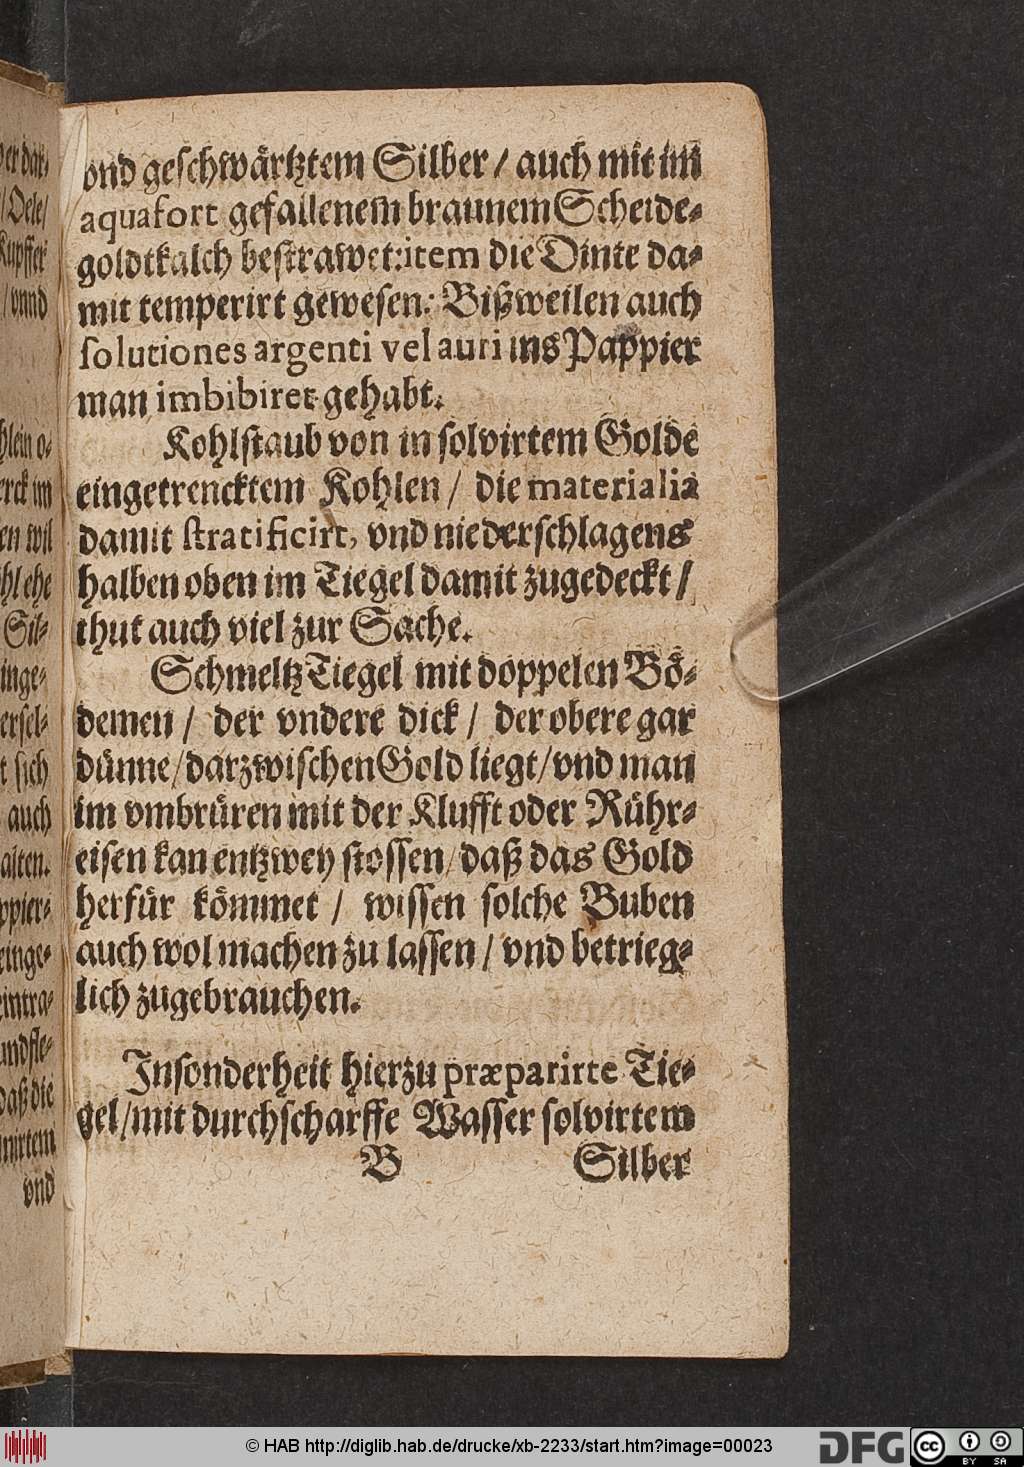 vnd geschwärtztem Silber / auch mit im
aquafort gefallenem braunem Scheide-
goldtkalch bestrawet: item die Dinte da-
mit temperirt gewesen: Bißweilen auch
solutiones argenti vel auri ins Pappier
man imbibiret gehabt.
Kohlstaub von in solvirtem Golde
eingetrencktem Kohlen / die materialia
damit stratificirt, vnd niederschlagens
halben oben im Tiegel damit zugedeckt /
thut auch viel zur Sache.
Schmeltz Tiegel mit doppelen Bö-
demen / der vndere dick / der obere gar
dünne / darzwischen Gold liegt / vnd man
im vmbrüren mit der Klufft oder Rühr-
eisen kan entzwey stossen / daß das Gold
herfür kömmet / wissen solche Buben
auch wol machen zu lassen / vnd betrieg-
lich zugebrauchen.
Insonderheit hierzu præparirte Tie-
gel / mit durch scharffe Wasser solvirtem
B Silber
Oele /
Kupffer
/ vnnd
hlein o-
erck im
en wil
hl ehe
Sil-
inge-
ersel-
t sich
auch
alten.
ppier-
einge-
eintra-
undfle-
daß die
nirtem
vnd
© HAB http://diglib.hab.de/drucke/xb-2233/start.htm?image=00023
DFG
cc
BY SA